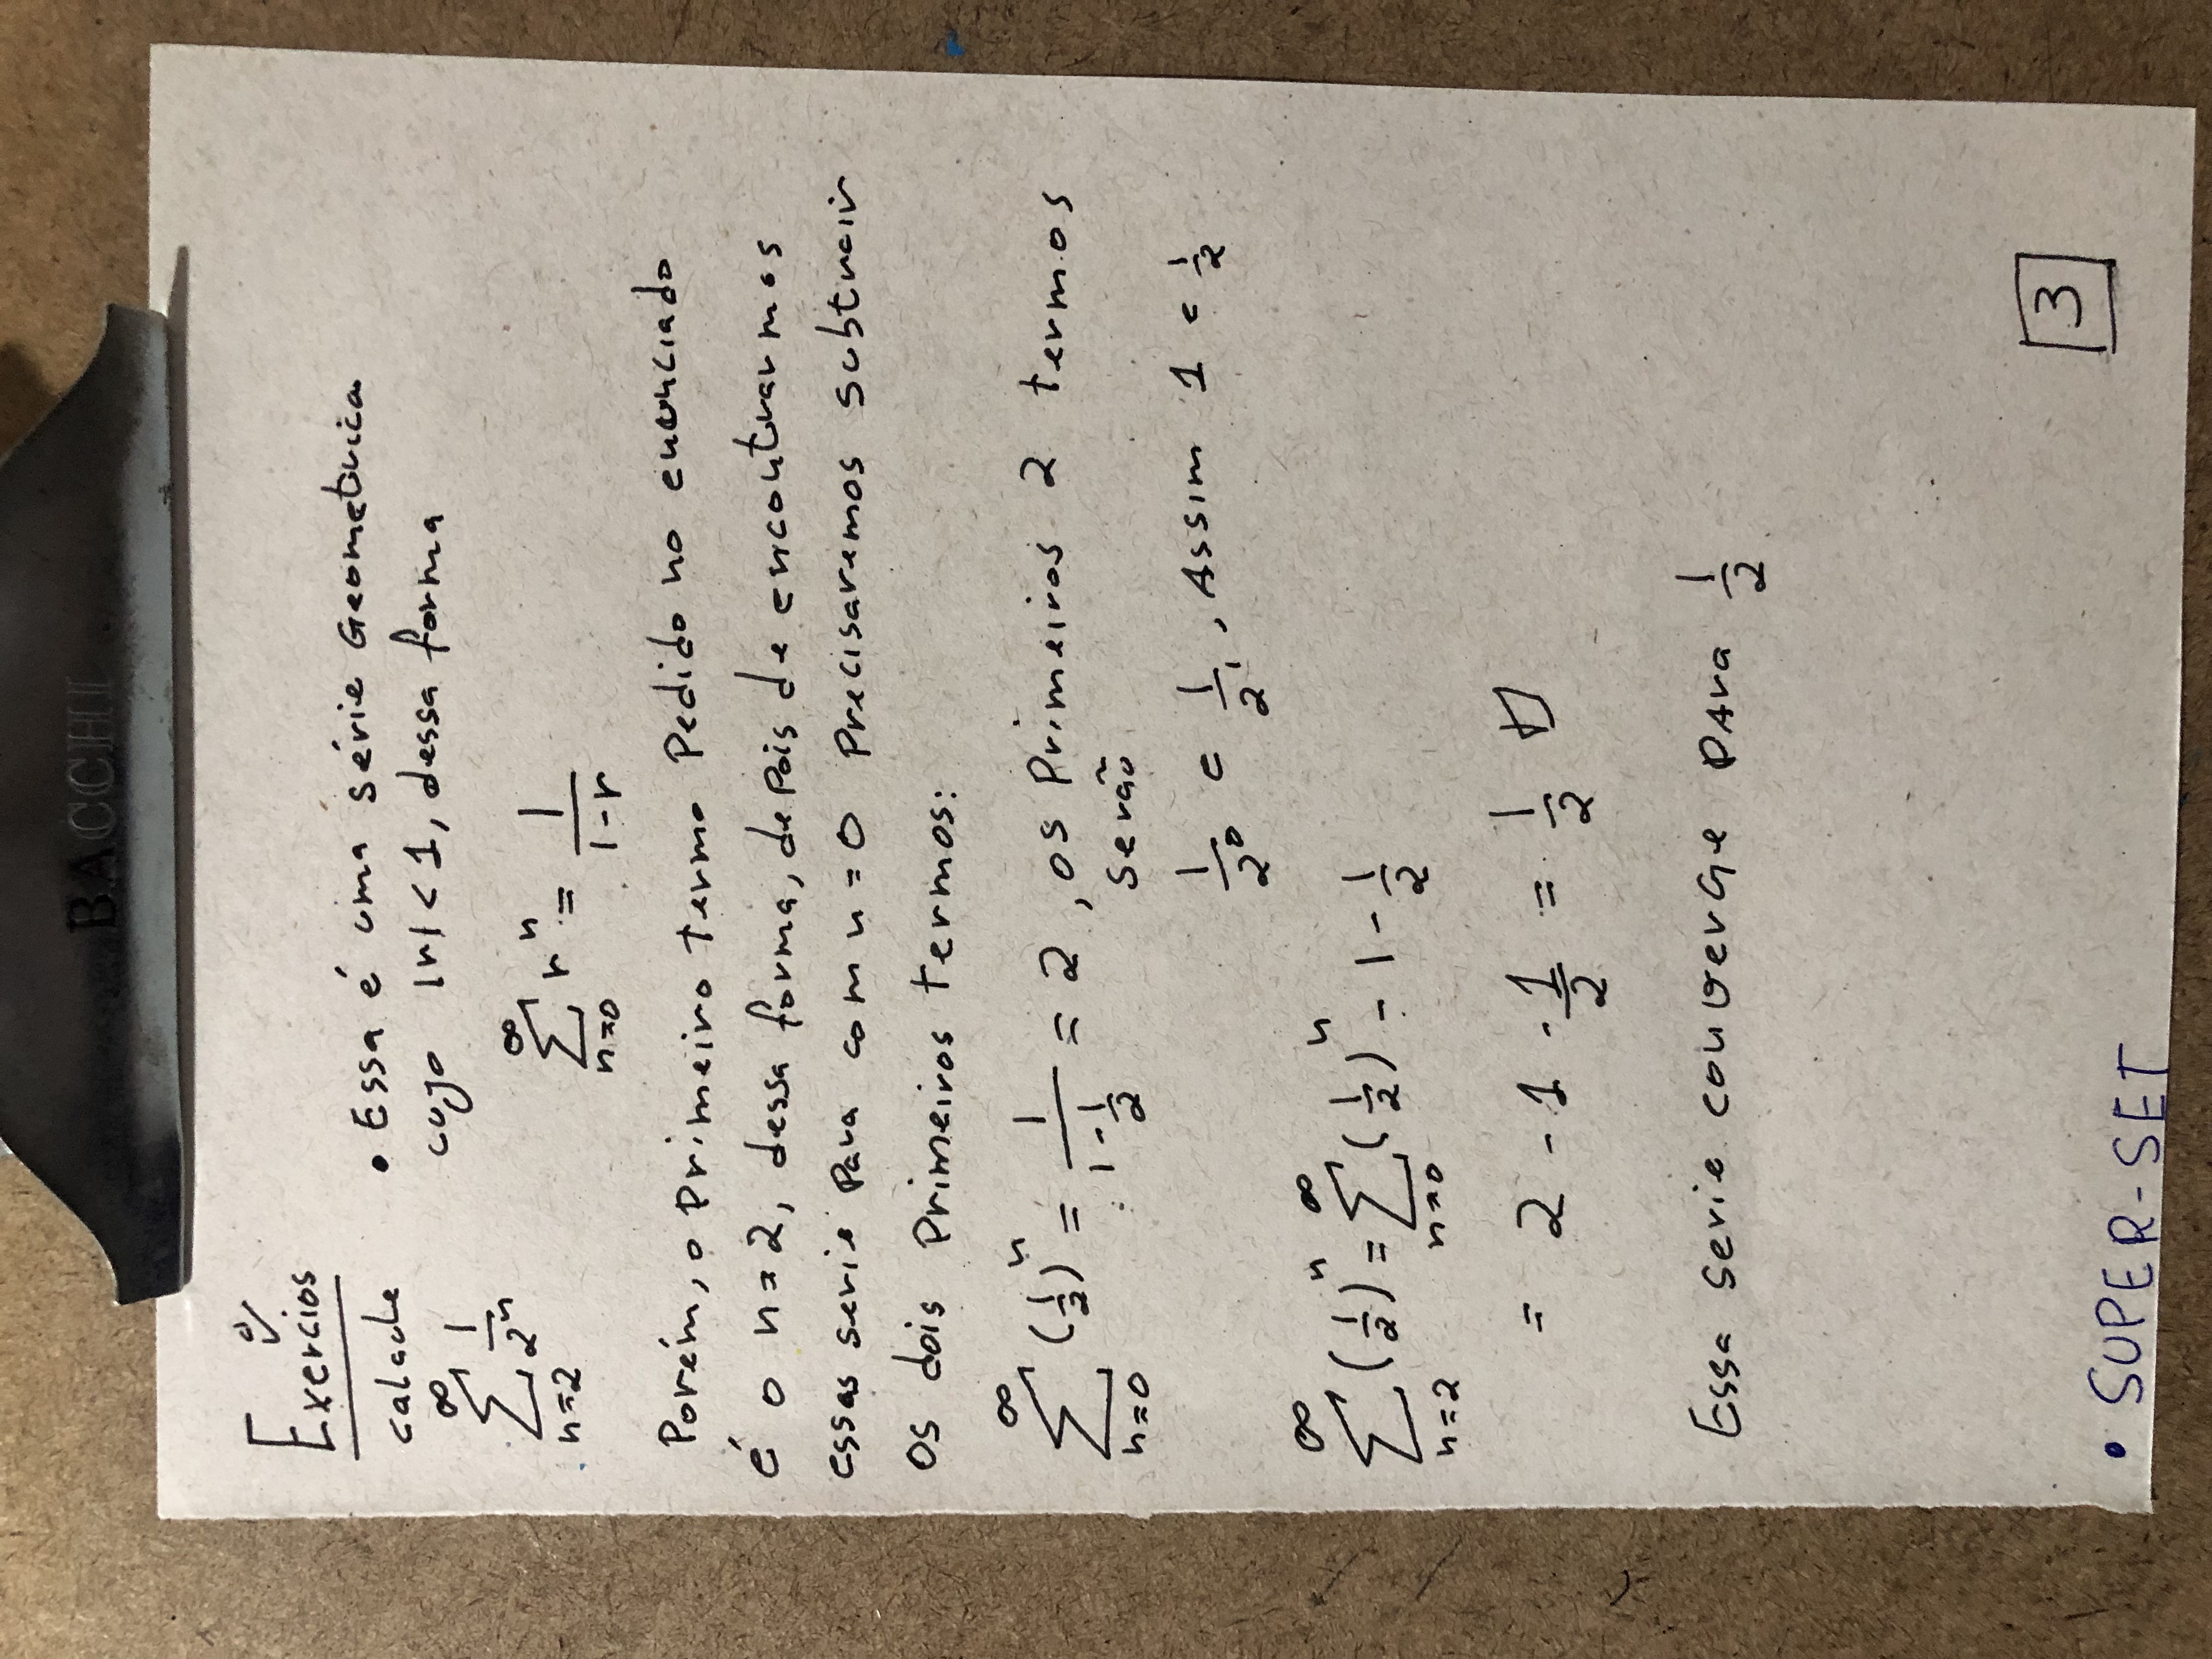 BACCHI
Exercios
calcule
∞
∑ 1/2^n
n=2
• Essa é uma série Geometrica
cujo |r| < 1, dessa forma
∞
∑ r^n = 1/(1-r)
n=0
Porém, o Primeiro termo Pedido no enunciado
é o n=2, dessa forma, depois de encontrarmos
essas serie Para com n=0 Precisaremos subtrair
os dois Primeiros termos:
∞
∑ (1/2)^n = 1/(1-1/2) = 2, os Primeiros 2 termos
n=0
serão
1/2^0 e 1/2^1, Assim 1 e 1/2
∞ ∞
∑ (1/2)^n = ∑ (1/2)^n - 1 - 1/2
n=2 n=0
= 2 - 1 - 1/2 = 1/2
Essa serie converge para 1/2
3
• SUPER-SET